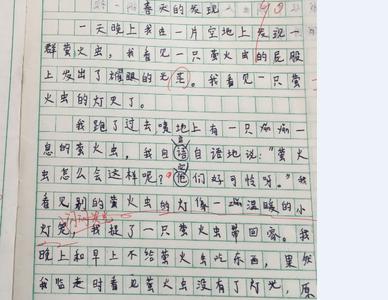 春天的发现 90
一天晚上我在一片空地上发现一
群萤火虫，我看见一只萤火虫的屁股
上发出了耀眼的光芒。我看见一只萤
火虫的灯灭了。
我跑了过去，地上有一只奄奄一
息的萤火虫，我自语自语地说：“萤火
虫怎么会这样呢？他们好可怜呀。”我
看见别的萤火虫的灯像一盏温暖的小
灯笼，我捉了一只萤火虫带回家。我
晚上和早上不给萤火虫吃东西，果然
我临走时看见萤火虫没有了灯光，原